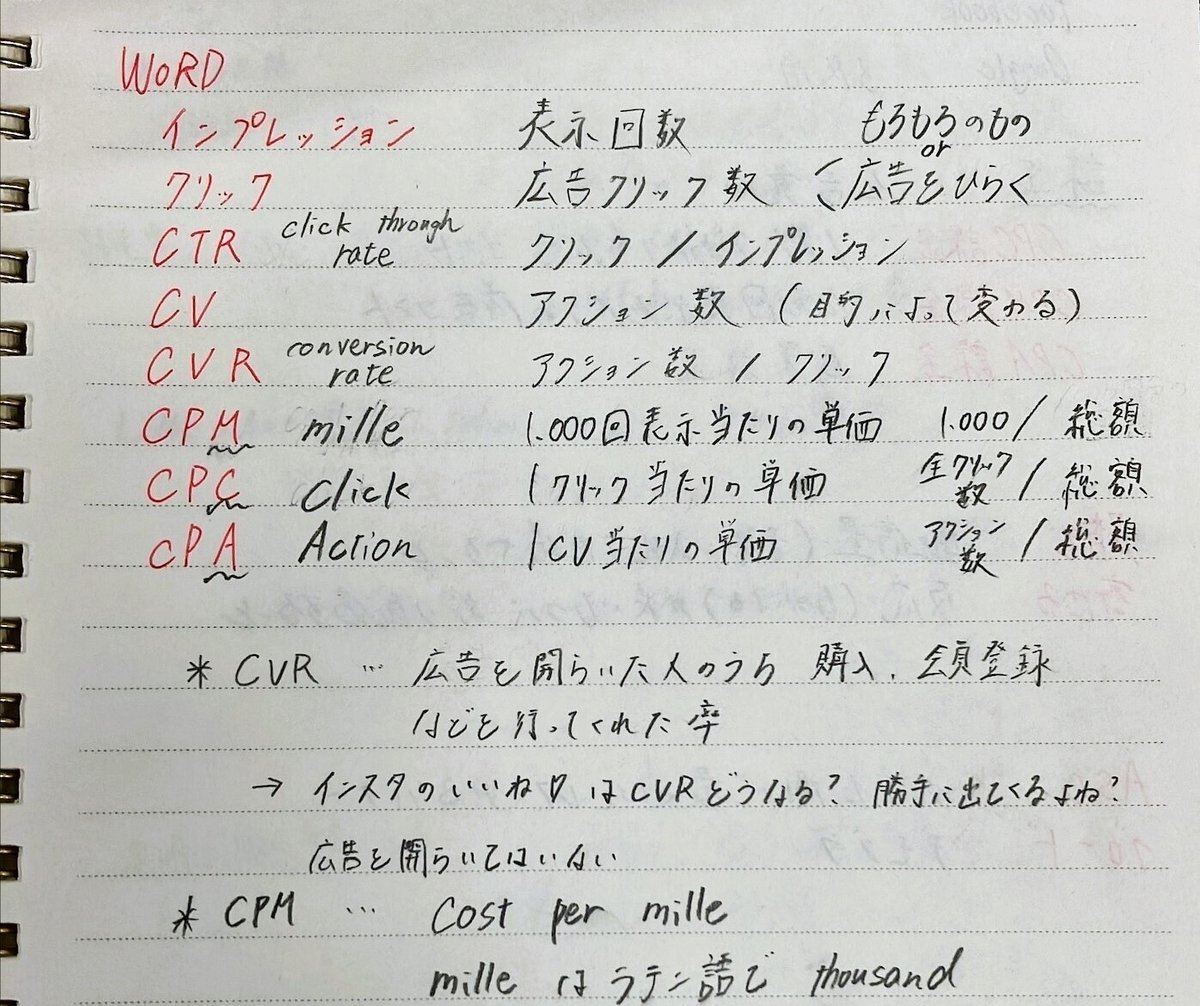 WORD
インプレッション 表示回数 もろもろのもの
or
クリック 広告クリック数 広告をひらく
CTR click through rate クリック / インプレッション
CV アクション数 (目的によって変わる)
CVR conversion rate アクション数 / クリック
CPM mille 1.000回表示当たりの単価 1.000 / 総額
CPC Click 1クリック当たりの単価 全クリック数 / 総額
CPA Action 1CV当たりの単価 アクション数 / 総額
* CVR … 広告を開らいた人のうち 購入、会員登録
などを行ってくれた率
→ インスタのいいね♡はCVRどうなる? 勝手に出てくるよね?
広告を開らいてはいない
* CPM … Cost per mille
mille はラテン語で thousand